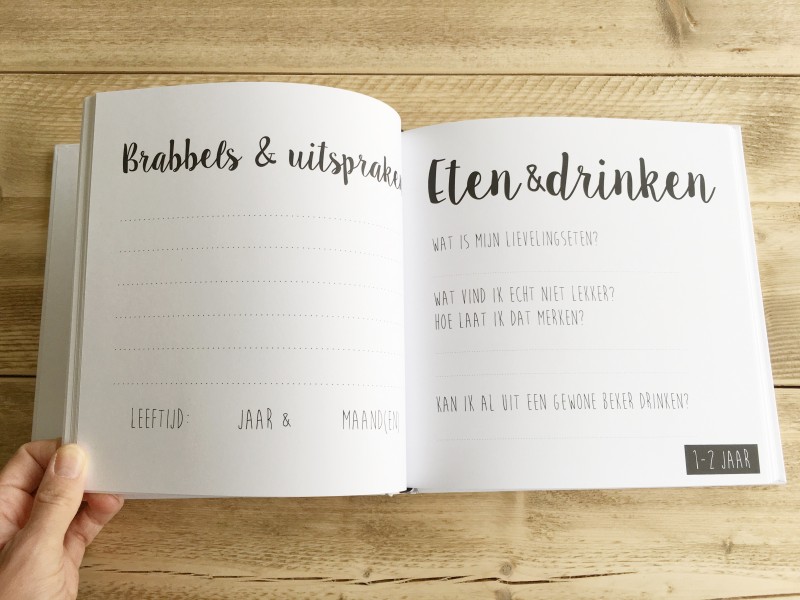 Brabbels & uitspraken
LEEFTIJD: JAAR & MAAND(EN)
Eten & drinken
WAT IS MIJN LIEVELINGSETEN?
WAT VIND IK ECHT NIET LEKKER?
HOE LAAT IK DAT MERKEN?
KAN IK AL UIT EEN GEWONE BEKER DRINKEN?
1-2 JAAR